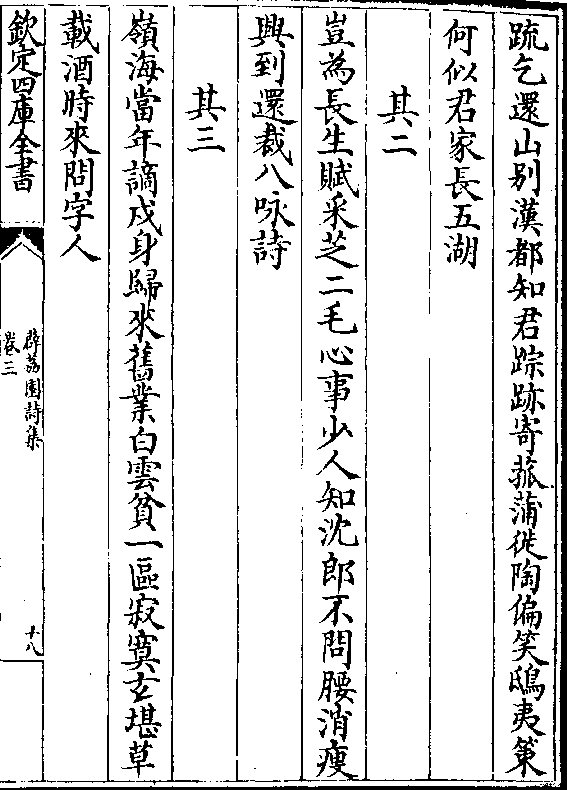 疏乞還山别漢都知君踪跡寄菰蒲從陶偏笑鴟夷策
何似君家長五湖
其二
豈為長生賦采芝二毛心事少人知沈郎不問腰消瘦
興到還裁八咏詩
其三
嶺海當年謫戍身歸來舊業白雲貧一區寂寞玄堪草
載酒時來問字人
欽定四庫全書
薜荔園詩集
卷三
十八